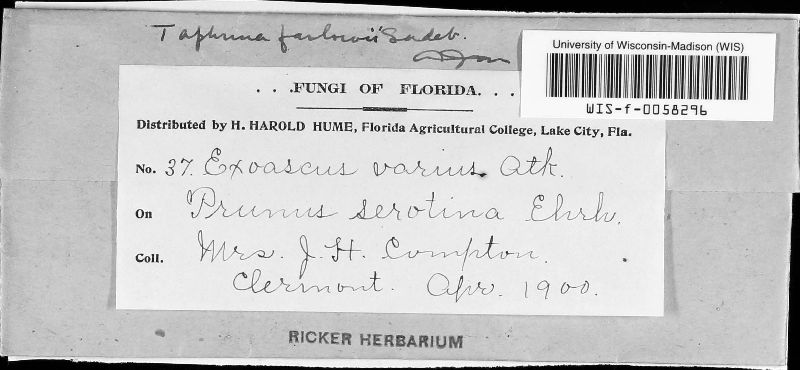 Taphrina farlowii Sadeb.
University of Wisconsin-Madison (WIS)
WIS-f-0058296
. . .FUNGI OF FLORIDA. . .
Distributed by H. HAROLD HUME, Florida Agricultural College, Lake City, Fla.
No. 37. Exoascus varius Atk.
On Prunus serotina Ehrh.
Coll. Mrs. J. H. Compton.
Clermont. Apr. 1900.
RICKER HERBARIUM